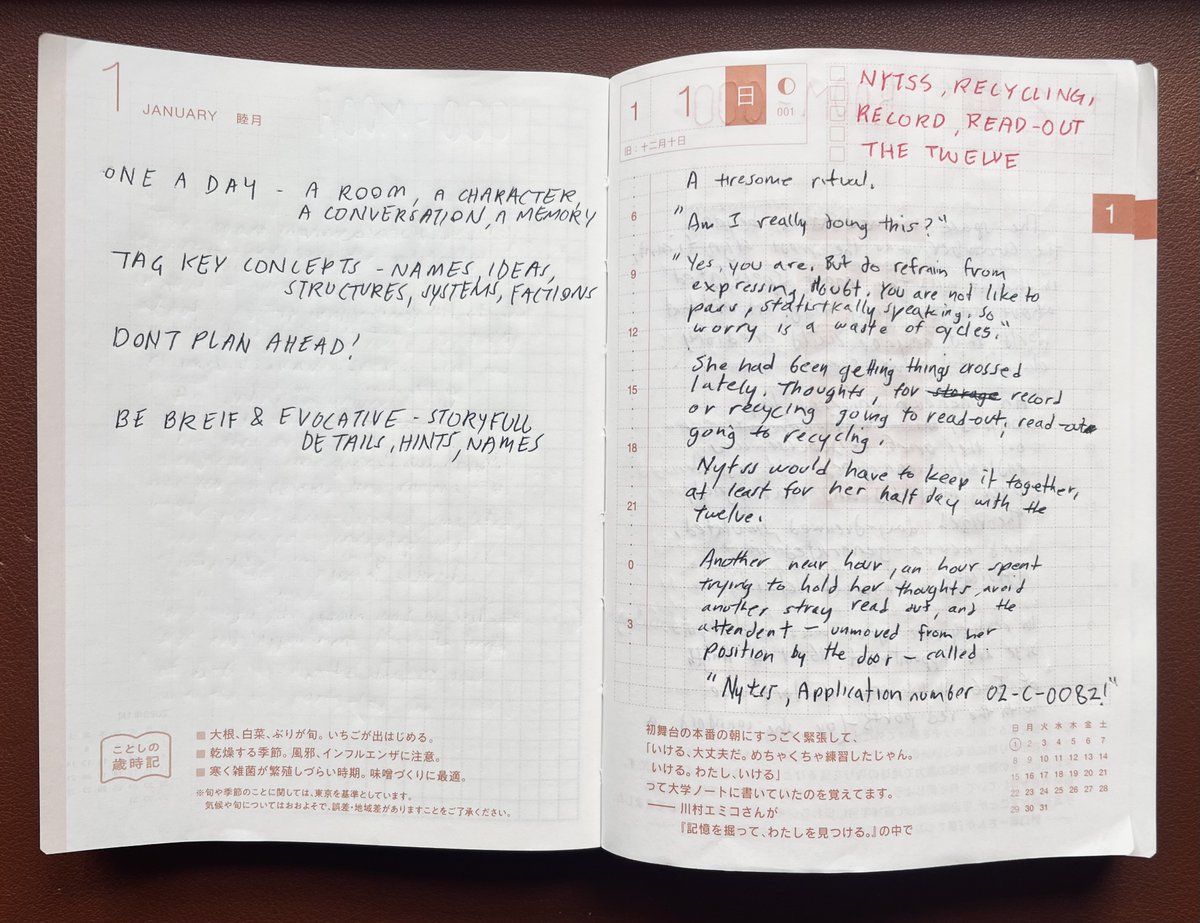 1
JANUARY 睦月
ONE A DAY - A ROOM, A CHARACTER,
A CONVERSATION, A MEMORY
TAG KEY CONCEPTS - NAMES, IDEAS,
STRUCTURES, SYSTEMS, FACTIONS
DONT PLAN AHEAD!
BE BREIF & EVOCATIVE - STORYFULL
DETAILS, HINTS, NAMES
ことしの
歳時記
大根、白菜、ぶりが旬。いちごが出はじめる。
乾燥する季節。風邪、インフルエンザに注意。
寒く雑菌が繁殖しづらい時期。味噌づくりに最適。
※旬や季節のことに関しては、東京を基準としています。
気候や旬についてはおおよそで、誤差・地域差がありますことをご了承ください。
1 1 日 001
旧:十二月十日
NYTSS, RECYCLING,
RECORD, READ-OUT
THE TWELVE
1
6
9
12
15
18
21
0
3
A tiresome ritual.
"Am I really doing this?"
"Yes, you are. But do refrain from
expressing doubt. You are not like to
pass, statistically speaking, so
worry is a waste of cycles."
She had been getting things crossed
lately. Thoughts, for storage record
or recycling going to read-out, read-out
going to recycling.
Nytss would have to keep it together,
at least for her half day with the
twelve.
Another near hour, an hour spent
trying to hold her thoughts, avoid
another stray read out, and the
attendent - unmoved from her
position by the door - called.
"Nytss, Application number 02-C-0082!"
初舞台の本番の朝にすっごく緊張して、
「いける、大丈夫だ。めちゃくちゃ練習したじゃん。
いける。わたし、いける」
って大学ノートに書いていたのを覚えてます。
―― 川村エミコさんが
『記憶を掘って、わたしを見つける。』の中で
日 月 火 水 木 金 土
1 2 3 4 5 6 7
8 9 10 11 12 13 14
15 16 17 18 19 20 21
22 23 24 25 26 27 28
29 30 31